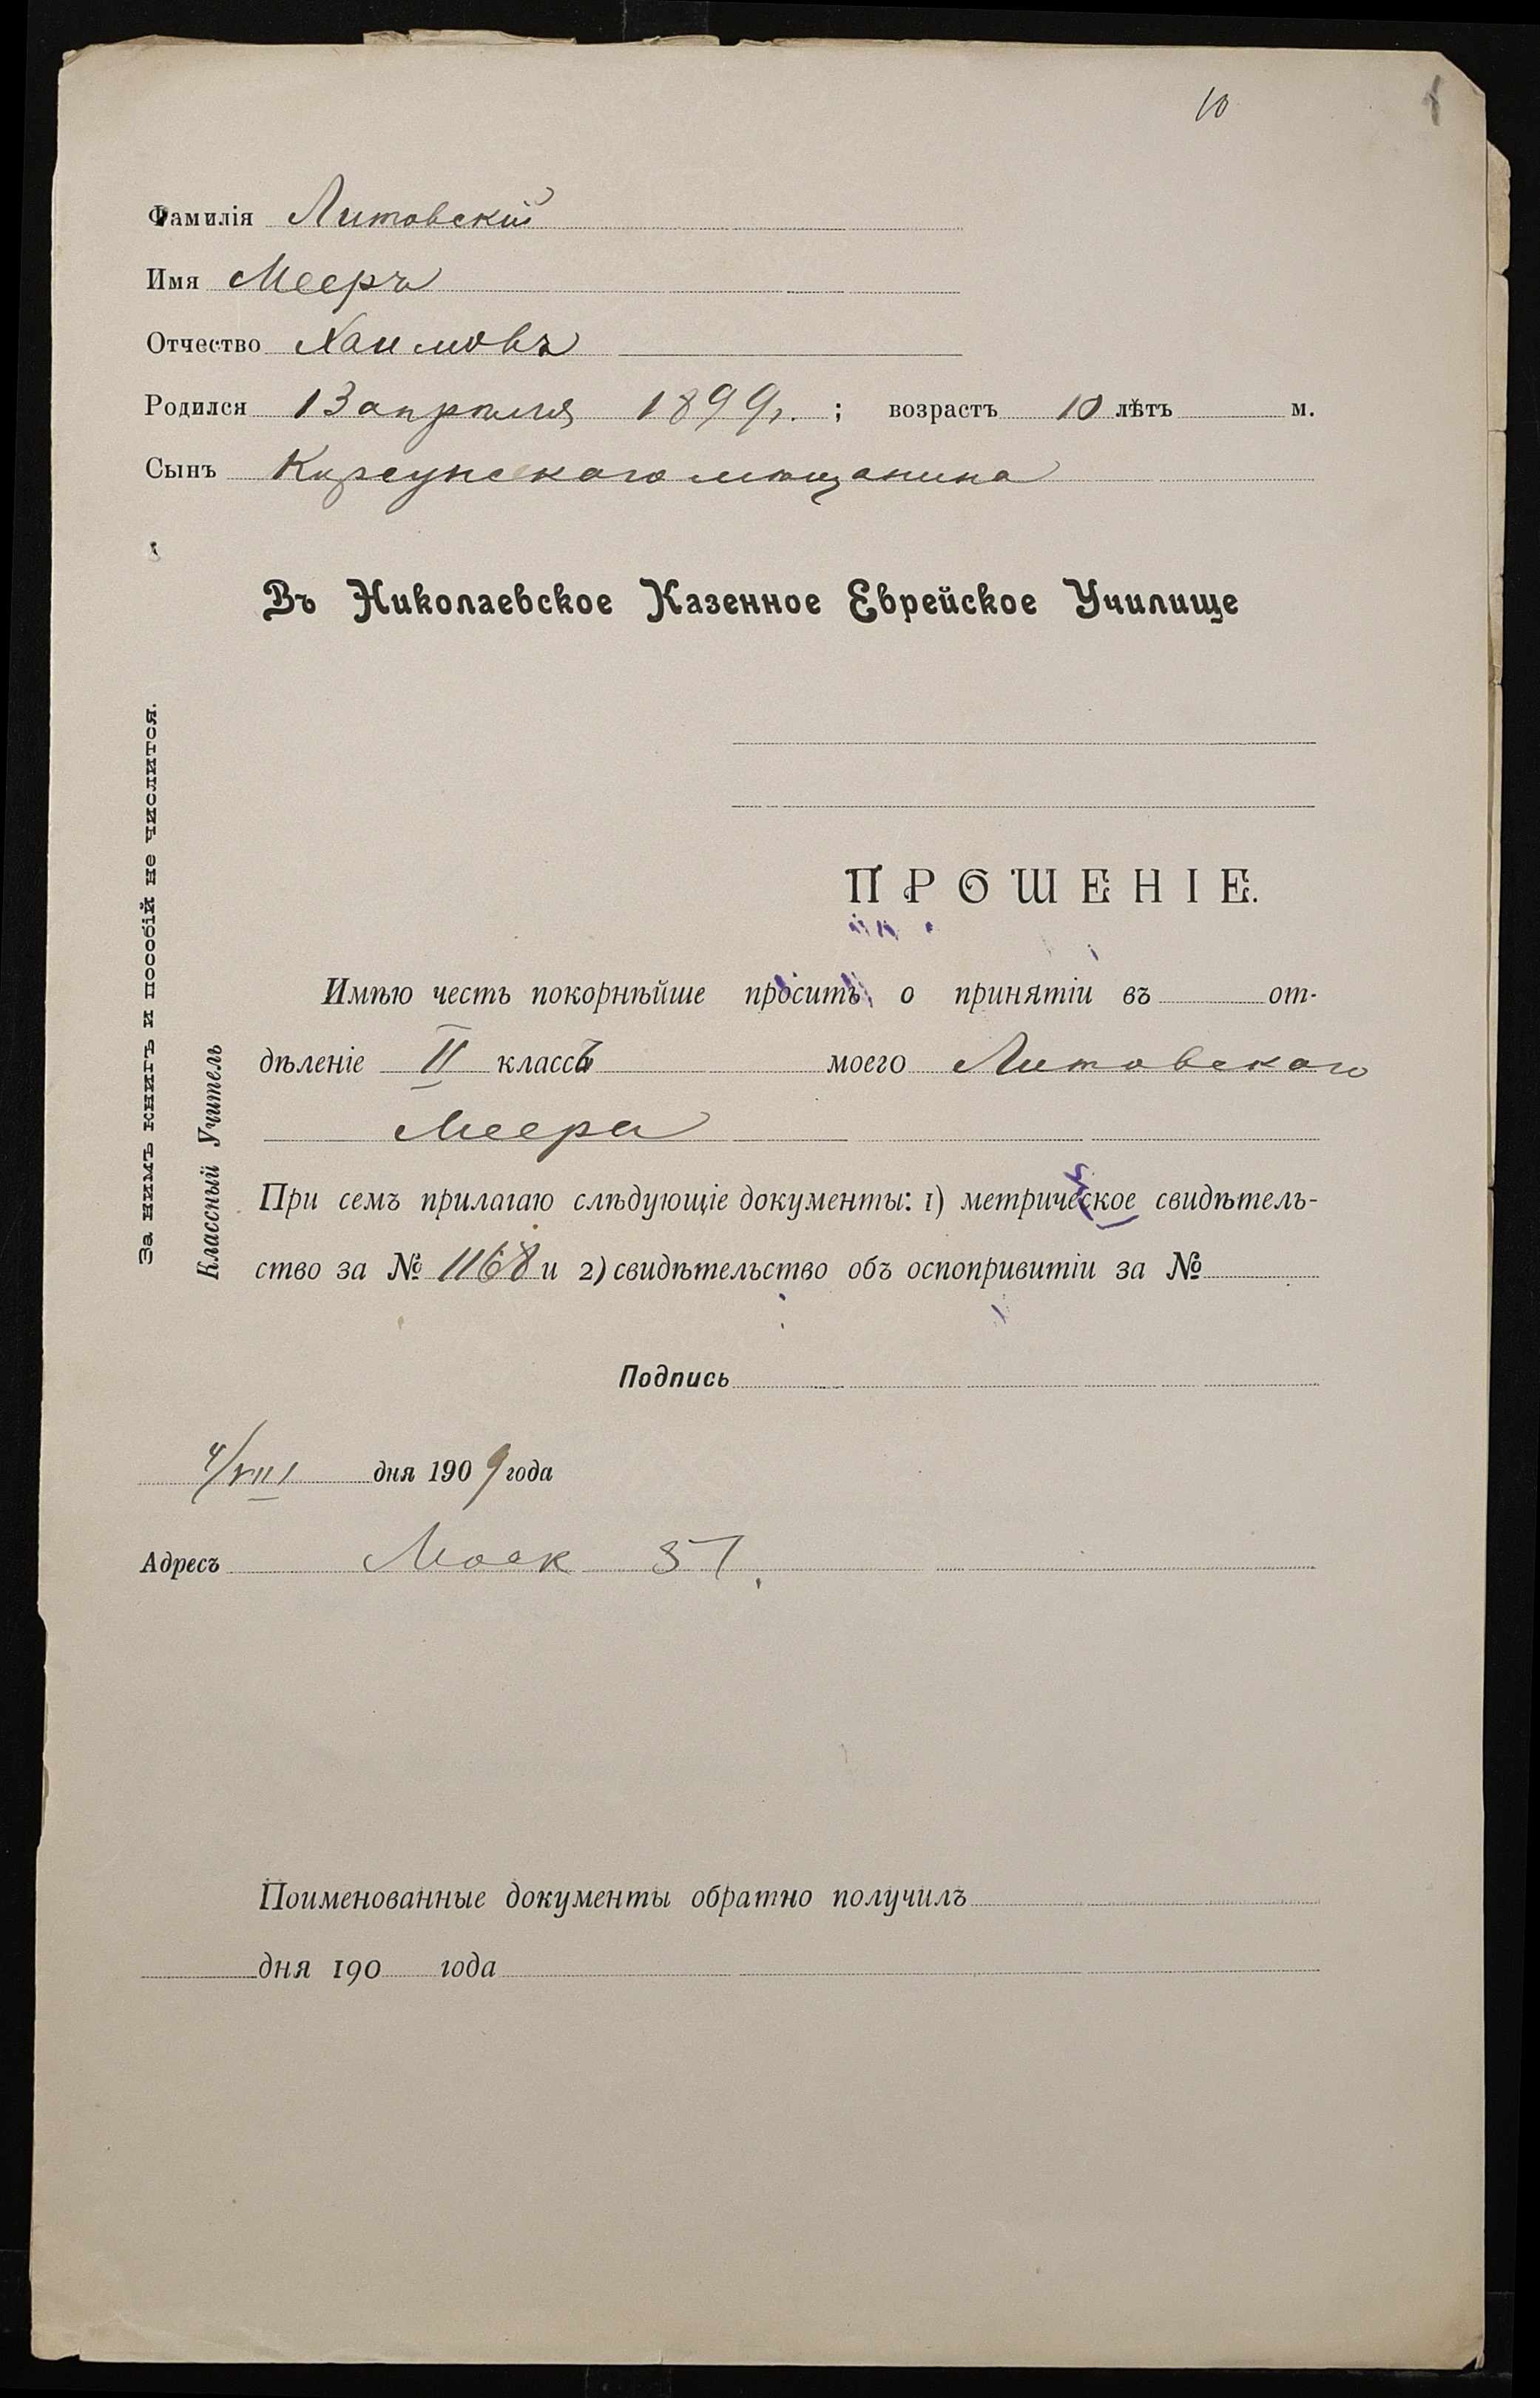 10
Фамилія Литовскій
Имя Мееръ
Отчество Хаимовъ
Родился 13 апрѣля 1899 г. ; возрастъ 10 лѣтъ м.
Сынъ Корсунскаго мѣщанина
Въ Николаевское Казенное Еврейское Училище
ПРОШЕНІЕ.
Имѣю честь покорнѣйше проситъ о принятіи въ от-
дѣленіе II класса моего Литовскаго
Меера
При семъ прилагаю слѣдующіе документы: 1) метрическое свидѣтель-
ство за № 1168 и 2) свидѣтельство объ оспопривитіи за №
Подпись
4/VIII дня 1909 года
Адресъ Моск 37.
Поименованные документы обратно получилъ
дня 190 года
За нимъ книгъ и пособій не числится.
Классный Учитель